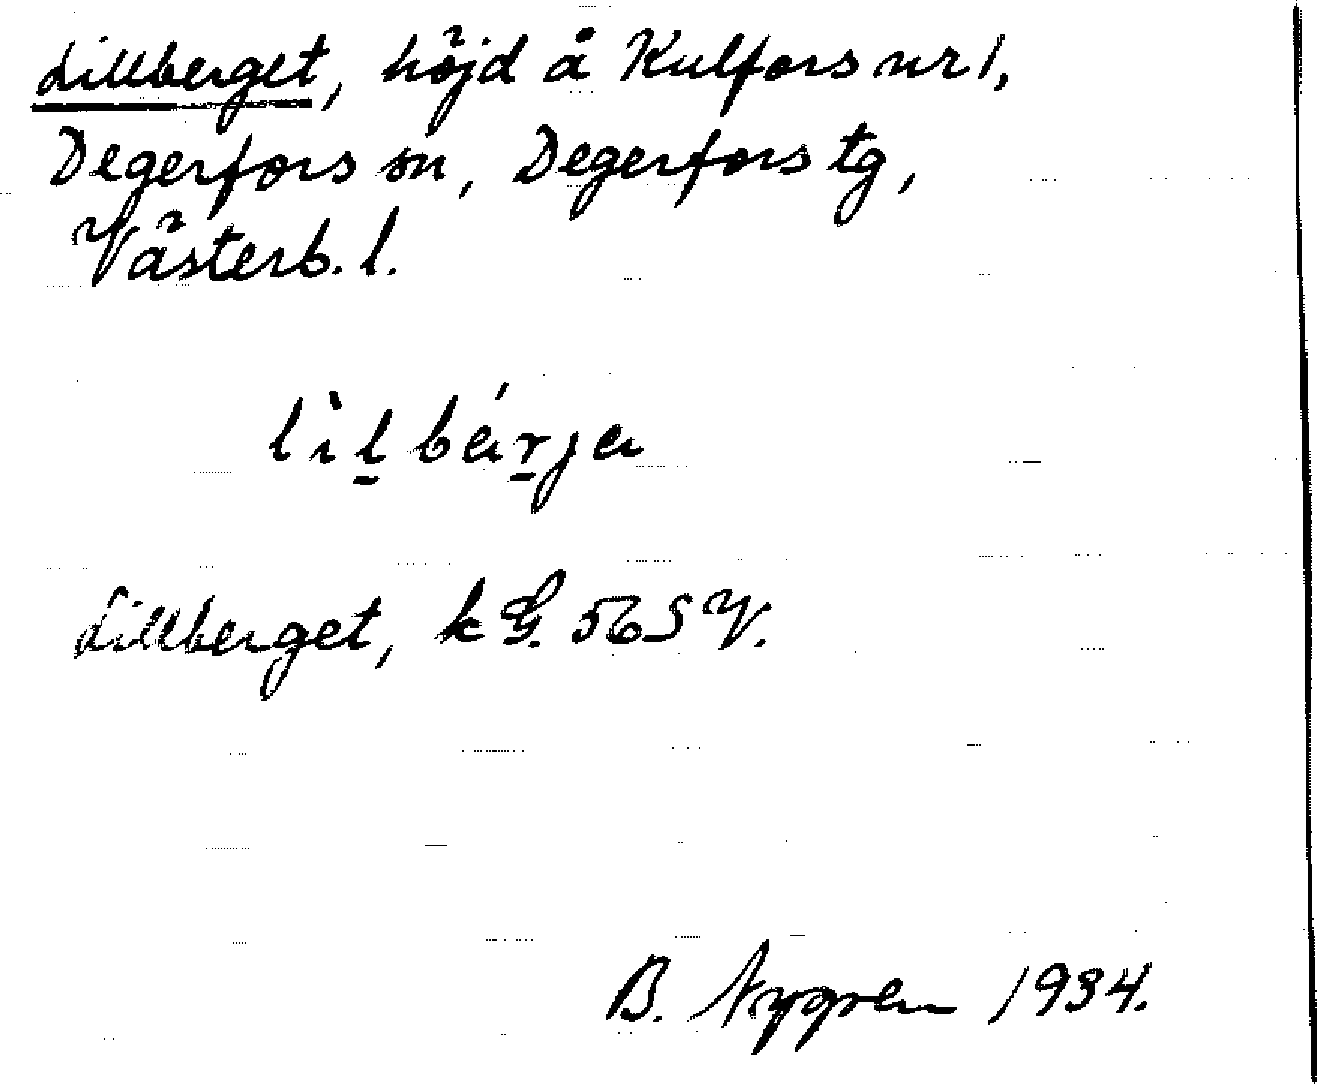 Lillberget, höjd å Kulfors nr 1,
Degerfors sn, Degerfors tg,
Västerb. l.
lìl̲bár̲ja
Lillberget, k G. 56 S V.
B. Nygren 1934.